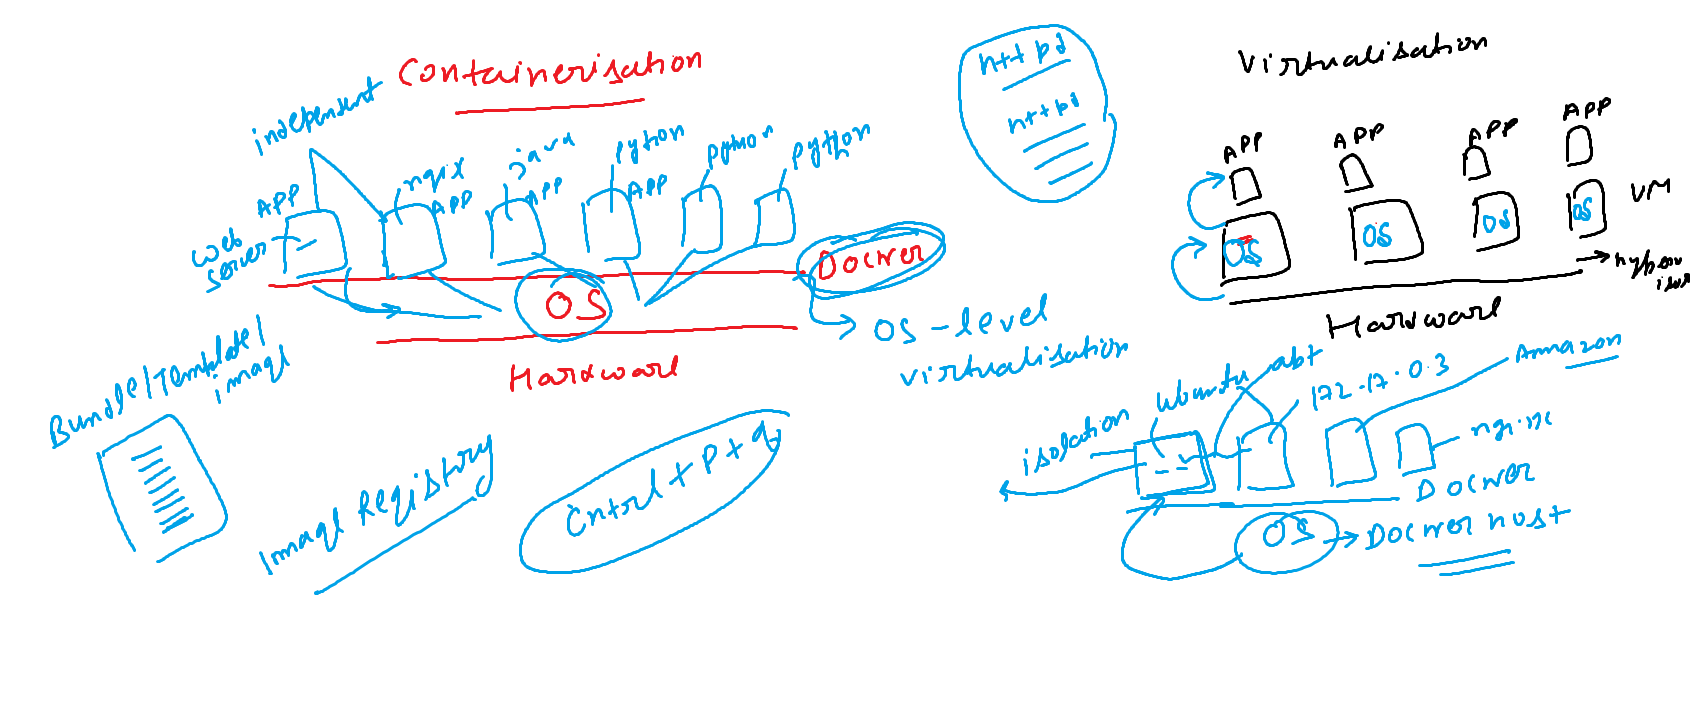 Containerisation
independent
APP
ngix
APP
java
APP
python
APP
python
python
web
server
OS
Docker
Hardware
OS-level
virtualisation
Bundle/Template/
image
Image Registory
Cntrl + P + q
httpd
httpd
Virtualisation
APP
APP
APP
APP
OS
OS
OS
OS
VM
Hardware
isolation
ubuntu
apt
172.17.0.3
Amazon
Docker
OS
Docker host